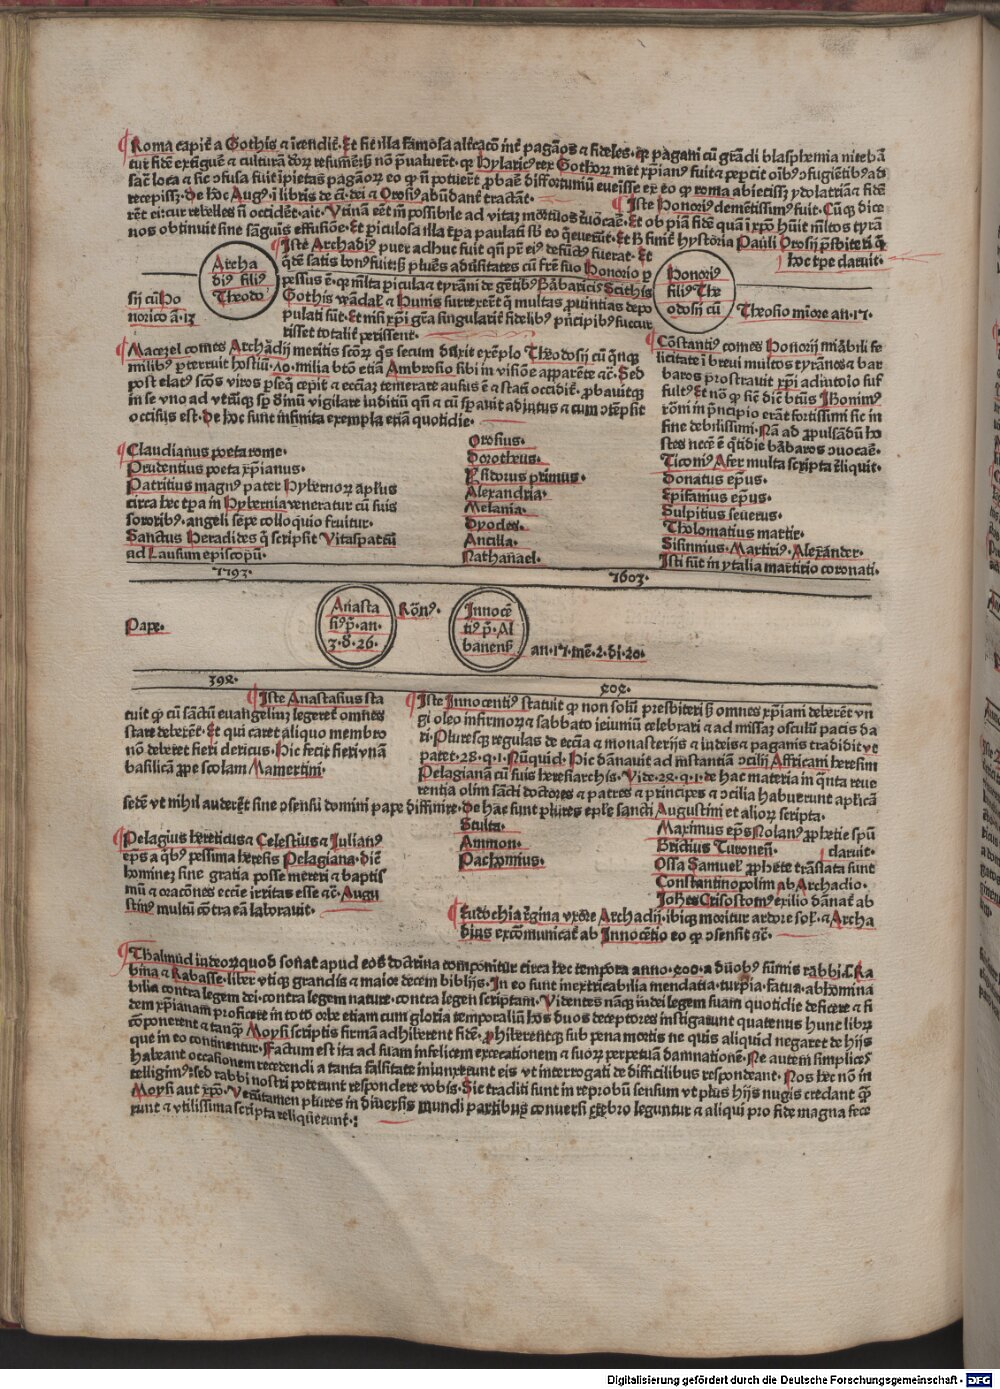 Roma capit̃ a Gothis & ĩcendit̃. Et fit illa famosa alt̃cacõ int̃ pagãos & fideles. qꝫ pagani cũ grãdi blasphemia nitebã
tur fidẽ extiguẽ & culturã deoꝝ resumẽ:sꝫ nõ p̃ualuer̃t. qꝫ Hylaricꝰ rex Gothoꝝ met xp̃ianꝰ fuit & pepcit oĩbꝰ ɔfugiẽtibꝰ ad
sac̃ loca & sic ɔfusa fuit ip̃ietas pagãoꝝ eo qꝫ ñ potuer̃t ꝓbaẽ diffortuniũ eueisse ex eo qꝫ roma abiecissꝫ ydolatriã & fidẽ
recepissꝫ. De hoc Augꝰ ĩ libris de ci. dei & Orosiꝰ abũdant̃ tractãt.
¶ Iste Honoriꝰ clementissimꝰ fuit. Cũqꝫ dice
rẽt ei:cur rebelles ñ occidẽt. ait. Vtinã eẽt m̃ possibile ad vitaꝫ mortuos reuocaẽ. Et ob piã fidẽ quã ĩ xp̃o hũit ml̃tos tyrã
nos obtinuit sine sãguis effusiõe. Et piculosa illa tp̃a paulati sb̃ eo q̃euer̃t. Et h̃ finit̃ hystoria Pauli Orosij p̃sbiteri q̃
hoc tp̃e claruit.
Archa
diꝰ filiꝰ
Theodo
sij cũ Ho
norico ã. 13
¶ Iste Archadiꝰ puer adhuc fuit qñ pẽ eiꝰ defũctꝰ fuerat. Et
q̃dẽ satis bonꝰ fuit:sꝫ pluẽs aduersitates cũ frẽ suo Honorio p
pessus ẽ. qꝫ ml̃ta picula & tyrãni de gẽtibꝰ Barbaricis Scithis
Gothis wãdal̃ & Hunis surrexer̃t q̃ multas ꝓuintias depo
pulati sũt. Et nisi xp̃i gr̃a singularit̃ fidelibꝰ p̃ncipibꝰ succur
risset totalit̃ perissent.
Honoriꝰ
filiꝰ The
odosij cũ
Theosio miore an. 17.
¶ Macezel comes Archadij meritis scõꝝ q̃s secum duxit exẽplo Theodosij cũ q̃nqꝫ
milibꝰ ꝑterruit hostiũ. 70. milia btõ etiã Ambrosio sibi in visiõe apparẽte &c̃. Sed
post elatꝰ scõs viros ꝑseq̃ cepit & eccl̃iaꝫ temerare ausus ẽ & statĩ occidit̃. ꝓbauitqꝫ
in se vno ad vtrũqꝫ sp̃ dñm vigilare iuditiũ qñ & cũ sp̃auit adiutus & cum ɔtẽpsit
occisus est. De hoc sunt infinita exempla etiã quotidie.
¶ Cõstantiꝰ comes Honorij mirabili fe
licitate ĩ breui multos tyrãnos & bar
baros ꝓstrauit xp̃i adiutolo suf
fultꝰ. Et nõ qꝫ sic̃ dic̃ btũs Ihonimꝰ
rõni in p̃ncipio erãt fortissimi sic in
fine debilissimi. Nã ad ꝓpulsãdũ ho
stes necẽ ẽ q̃tidie barbaros ɔuocaẽ.
¶ Claudianus poeta rome.
Prudentius poeta xp̃ianus.
Patritius magnꝰ pater Hybernoꝝ ap̃lus
circa hec tp̃a in Hybernia veneratur cũ suis
sororibꝰ. angeli sepe colloquio fruitur.
Sanctus Heraclides q̃ scripsit Vitaspat̃ũ
ad Lausum episcopũ.
Orosius.
Dorotheus.
Ysidorus primus.
Alexandria.
Melania.
Dyodes.
Ancilla.
Nathanael.
Ticoniꝰ Afer multa scripta reliquit.
Donatus ep̃us.
Epifamius ep̃us.
Sulpitius seuerus.
Tholomatius martir.
Sisinnius. Martiriꝰ. Alexãnder.
Isti sũt in ytalia martirio coronati.
7793.
7603.
Pape.
Anasta
siꝰ p̃. an.
3. d. 26.
Rõnꝰ.
Innocẽ
tiꝰ p̃. Al
banensꝭ
an. 17. mẽ. 2. di. 20.
392.
402.
¶ Iste Anastasius sta
tuit qꝫ cũ sãctũ euangeliuꝫ legeret̃ omnes
stare deberẽt. Et qui caret aliquo membro
nõ deberet fieri clericus. Hic fecit fieri vnã
basilicã ꝓpe scolam Mamertini.
¶ Iste Innocentiꝰ statuit qꝫ non solũ presbiteri sꝫ omnes xp̃iani deberẽt vn
gi oleo infirmoꝝ & sabbato ieiuniũ celebrari & ad missaꝫ osculũ pacis da
ri. Pluresqꝫ regulas de eccl̃ia & monasterijs & iudeis & paganis tradidit vt
patet. 28. q. 1. Nũquid. Hic dãnauit ad instantiã ɔcilij Affricani heresim
Pelagianã cũ suis heresiarchis. Vide. 28. q. 1. de hac materia in q̃nta reue
rentia olim sãcti doctores & patres & principes & ɔcilia habuerunt aplicã
sedẽ vt nihil auderẽt sine ɔsensũ domini pape diffinire. De hac sunt plures eple sancti Augustini et alioꝝ scripta.
¶ Pelagius hereticus & Celestius & Iulianꝰ
ep̃s a qbꝰ pessima heresis Pelagiana. dicẽ
hominez sine gratia posse mereri & baptis
mũ & oracões eccl̃ie irritas esse &c̃. Augu
stinꝰ multũ cõtra eã laborauit.
Stulta.
Ammon.
Pachomius.
Maximus ep̃s Nolanꝰ ꝓphetie spũ
Bricius Turoneñ.
claruit.
Ossa Samuel̃ ꝓphete trãslata sunt
Constantinopolim ab Archadio.
Johẽs Crisostomꝰ exilio dãnat̃ ab
¶ Eudochia regina vxore Archadij. ibiqꝫ moritur ardore sol̃. & Archa
dius excõmunicat̃ ab Innocẽtio eo qꝫ ɔsensit &c̃.
¶ Thalmud iudeoꝝ quod sonat apud eos doctrina componitur circa hec tempora anno. 400. a duobꝰ sũmis rabbi. s. Ra
bina & Rabasse. liber vtiqꝫ grandis & maior decem biblijs. In eo sunt inextricabilia mendatia. turpia. fatua. abhomina
bilia contra legem dei. contra legem nature. contra legem scriptam. Videntes nãqꝫ iudei legem suam quotidie deficere & fi
dem xp̃ianam proficere in toto orbe etiam cum gloria temporaliũ hos duos deceptores instigarunt quatenus hunc librꝫ
cõponerent & tanqꝫ̃ Moysi scriptis firmã adhiberent fidẽ. ꝓhiberentqꝫ sub pena mortis ne quis aliquid negaret de hijs
que in eo continentur. Factum est ita ad suam infelicem excecationem & suoꝝ perpetuã damnationẽ. Ne autem simplices
habeant occasionem recedendi a tanta falsitate iniunxerunt eis vt interrogati de difficilibus respondeant. Nos hec nõ in
telligimꝰ:sed rabbi nostri poterunt respondere vobis. Sic traditi sunt in reprobũ sensum vt plus hijs nugis credant qꝫ̃
Moysi aut xp̃o. Verũtamen plures in diuersis mundi partibus conuersi crebro leguntur & aliqui pro fide magna fece
runt & vtilissima scripta reliquerunt.:
Digitalisierung gefördert durch die Deutsche Forschungsgemeinschaft - DFG